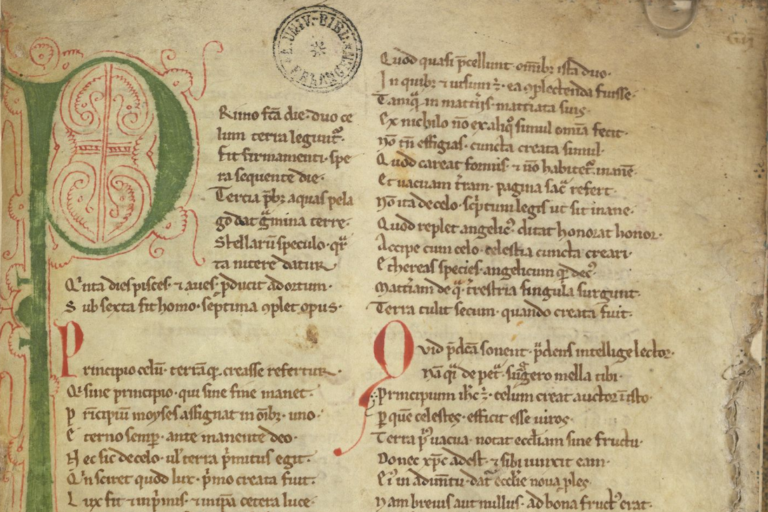 UNIV. BIBL
ERLANGEN
Rimo fcā die duo ce
lum terra leguntᷣ.
fit firmamenti spe
ra sequente die.
Tercia pħꝫ aquas pela
go dat gͣmina terre.
Stellarū speculo. qͣr
ta nitere datur.
Qͥnta dies pisces. ⁊ aues ꝓducit ad ortum.
Sub sexta fit homo. septima ꝯplet opus.
Principio celū. terrāqꝫ creasse refertur.
Qͥ sine principio. qui sine fine manet.
Pͥncipiū moyses assignat in oībꝫ uno.
Eterno semꝑ. ante manente deo.
Hec sic de celo. ul' terra pͥmitus egit.
Qͥn sciret quod lux. pͥmo creata fuit.
Lux fit ⁊ inpͥmis. ⁊ inīpa cetera luce.
Quod quasi p̄cellunt. omībꝫ ista duo.
In quibꝫ ⁊ uersum ÷. ea ꝯplectenda fuisse.
Tamqͣ in matͥijs. matiata suis.
Ex nichilo nō ex aliqͦ simul omīa fecit.
nō tn̄ effigias. cuncta creata simul.
Quod careat formis. ⁊ nō habitetᷣ. inane.
Et uacuam t̄ram. pagina sac̄ refert.
nō ita de celo. sc̄ptum legis ut sit inane.
Quod replet angelicꝰ. ditat honorat honor.
Accipe cum celo. celestia cuncta creari.
Ethereas species. angelicum qꝫ decꝰ.
Mat̄iam de qͣ. t̄restria singula surgunt.
Terra tulit secum. quando creata fuit.
Quid p̄dc̄a sonent. pͬdens intellige lector.
Nā qͥ de petͣ. suḡero mella tibi.
Principium ihc̄ ÷. celum creat auctor ī isto.
ꝑ quē celestes. efficit esse uiros.
Terra pͥꝰ uacua. notat ecclīam sine fructu.
Donec xp̄c adest. ⁊ sibi iunxit eam.
Eiꝰ in aduentu. datᷣ ecclīe noua ples.
Nam breuis aut nullus. ad bona fructꝰ erat.